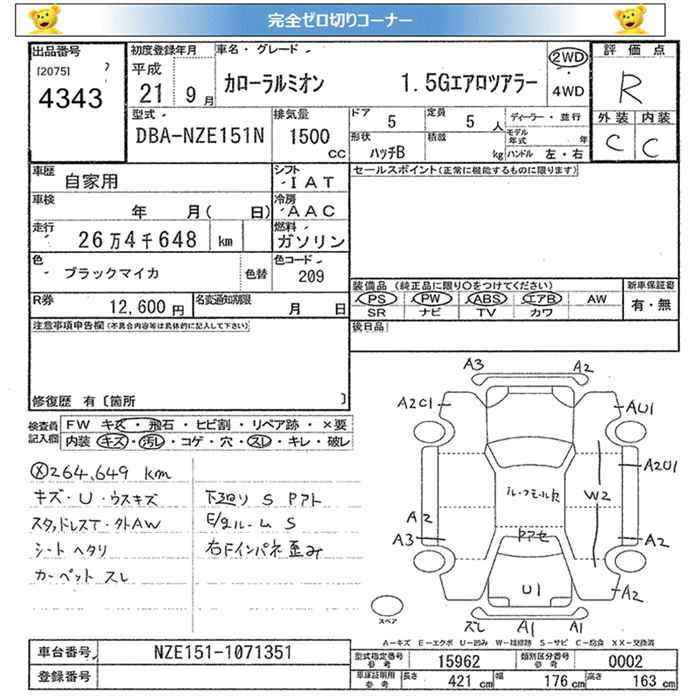 完全ゼロ切りコーナー
出品番号
[2075]
4343
初度登録年月
平成
21 9月
車名・グレード
カローラルミオン 1.5Gエアロツアラー
2WD
4WD
評価点
R
外装 内装
C C
型式
DBA-NZE151N
排気量
1500
CC
ドア 5
定員 5人
ディーラー・並行
形状
ハッチB
積載
kg
モデル年式 年
ハンドル 左・右
車歴
自家用
シフト
IAT
セールスポイント(正常に機能するものに限ります)
車検
年 月( 日)
冷房
AAC
走行
26万4千648 km
燃料
ガソリン
色
ブラックマイカ
色替
色コード
209
装備品 (純正品に限り○をつけてください)
新車保証書
PS PW ABS エアB AW
SR ナビ TV カワ
有・無
R券
12,600円
名変通知期限
月 日
注意事項申告欄(不具合内容等は具体的に記入して下さい)
後日品
修復歴 有〔箇所 〕
検査員
記入欄
FW キズ・飛石・ヒビ割・リペア跡・×要
内装 キズ・汚レ・コゲ・穴・スレ・キレ・破レ
Ⓧ264,649 km
キズ・U・ウスキズ
スタッドレスT・外AW
シート ヘタリ
カーペット スレ
下廻り S Pアト
E/gルーム S
右Fインパネ歪み
A3 A2
A2C1 AU1
A2U1
ルーフモール欠
W2
A2
A3
A2
U1
A2
スレ A1 A1
スペア
A-キズ E-エクボ U-凹み W-補修跡 S-サビ C-腐食 XX-交換済
車台番号
NZE151-1071351
登録番号
型式指定番号
参考
15962
類別区分番号
参考
0002
車庫証明用
参考
長さ 421cm 幅 176cm 高さ 163cm